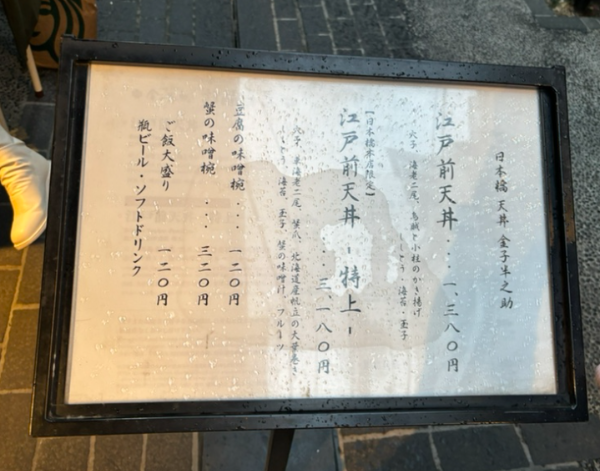 日本橋 天丼 金子半之助
江戸前天丼・・・・一、三八〇円
穴子、海老二尾、烏賊と小柱のかき揚げ
ししとう、海苔、玉子
【日本橋本店限定】
江戸前天丼 -特上-
・・・三、一八〇円
穴子、海老二尾、蟹爪、北海道産帆立の大葉巻き
ししとう、海苔、玉子、蟹の味噌汁、フルーツ
豆腐の味噌椀・・・一二〇円
蟹の味噌椀・・・三二〇円
ご飯大盛り 一二〇円
瓶ビール・ソフトドリンク